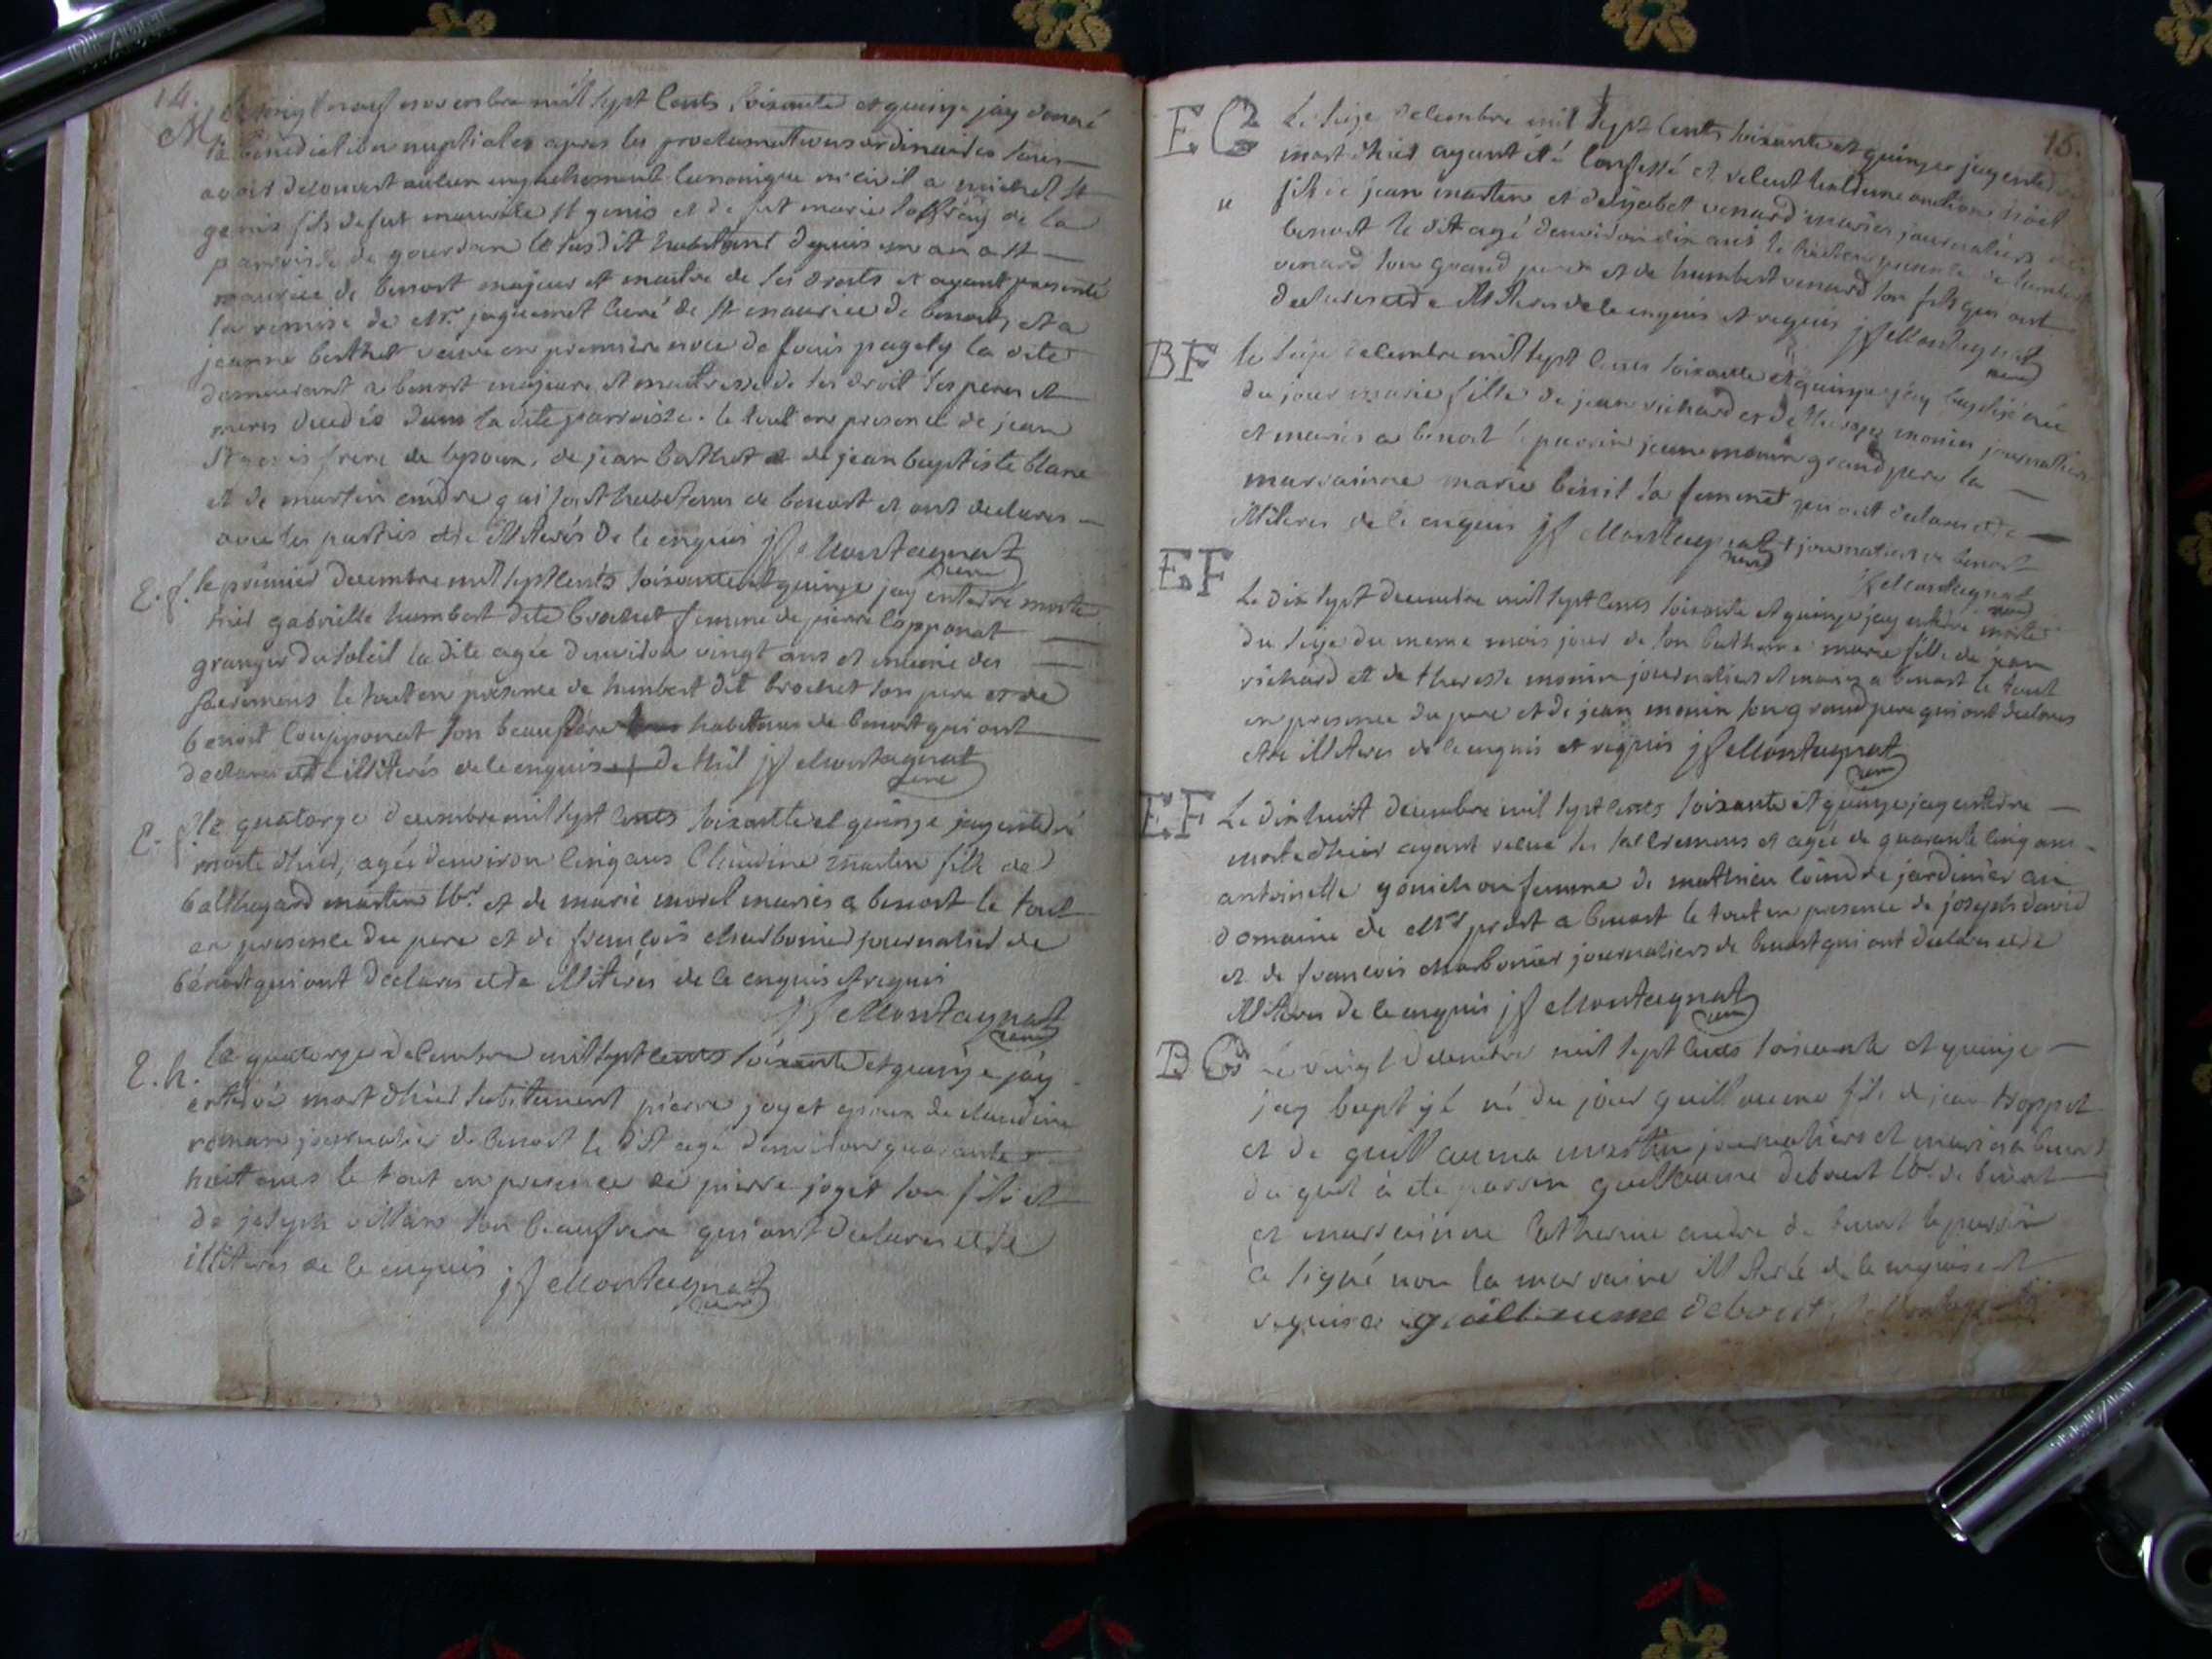 14.
M Le vingt neuf novembre mil sept cents soixante et quinze jay donné
la bénédiction nuptiale apres les proclamations ordinaires sans
avoir decouvert aucun empechement canonique ni civil a michel st
genis fils de fut maurice st genis et de fut marie de la
parroisse de gourdan le susdit habitant depuis un an a st
maurice de benost majeur et maitre de ses droits et ayant presenté
la remise de Mr. jaquemet curé de st maurice de benost, et a
jeanne berthet veuve en premiere noce de la dite
demeurant a benost majeure et maitresse de ses droit ses peres et
meres dans la dite parroisse. le tout en presence de jean
st genis frere de lepoux, de jean berthet et de jean baptiste blanc
et de martin qui sont habitans de benost et ont declares
avec les parties etre illiterés de ce enquis jf Montagnat
curé
E. f. le premier decembre mil sept cents soixante et quinze jay enterré morte
hier gabrielle humbert dite brochet femme de pierre copponat
granger du soleil la dite agée denviron vingt ans et munie des
sacremens le tout en presence de humbert dit brochet son pere et de
benoit copponat son beaufrere habitans de benost qui ont
declares etre illiterés de ce enquis jf Montagnat
curé
E. f. le quatorze decembre mil sept cents soixante et quinze jay enterré
morte dhier, agée denviron cinq ans Claudine martin fille de
balthazard martin lbr. et de marie morel mariés a benost le tout
en presence du pere et de françois charbonier journalier de
benost qui ont declares etre illiterés de ce enquis et requis
jf Montagnat
curé
E. h. le quatorze decembre mil sept cents soixante et quinze jay
enterré mort dhier subitement pierre joyet epoux de claudine
roman journalier de benost le dit agé denviron quarante
huit ans le tout en presence de pierre joyet son fils et
de joseph villars son beaufrere qui ont declares etre
illiteres de ce enquis jf Montagnat
curé
15.
EG Le seize decembre mil sept cents soixante et quinze jay enterré
mort dhier ayant été confessé et receut lextreme onction noel
fils de jean martin et delizabet venard mariés journaliers
benost le dit agé denviron dix ans le tout en presence de
venard son grand pere et de humbert venard son fils qui ont
declares etre illiteres de ce enquis et requis jf Montagnat
curé
BF le seize decembre mil sept cents soixante et quinze jay baptisé née
du jour marie fille de jean richard et de therese monin journaliers
et mariés a benost le parrin jean monin grand pere la
marrainne marie benit sa femme qui ont declares etre
illiteres de ce enquis jf Montagnat journaliers a benost
curé
jf Montagnat
curé
EF Le dix sept decembre mil sept cents soixante et quinze jay enterré morte
du seize du meme mois jour de son batheme marie fille de jean
richard et de theresse monin journaliers et mariés a benost le tout
en presence du pere et de jean monin son grand pere qui ont declares
etre illiteres de ce enquis et requis jf Montagnat
curé
EF Le dix huit decembre mil sept cents soixante et quinze jay enterré
morte dhier ayant receu les sacremens et agée de quarante cinq ans
antoinette gonichon femme de mathieu coindre jardinier au
domaine de Mr prost a benost le tout en presence de joseph david
et de françois charbonier journaliers de benost qui ont declares etre
illiteres de ce enquis jf Montagnat
curé
BG Le vingt decembre mil sept cents soixante et quinze
jay baptizé né du jour guillaume fils de jean troppet
et de guillauma martin journaliers et mariés a benost
du quel a ete parrin guillaume debout lbr de benost
et marrainne Catherine de benost le parrin
a signé non la marraine illiterée de ce enquise et
requise guillaume debout jf Montagnat